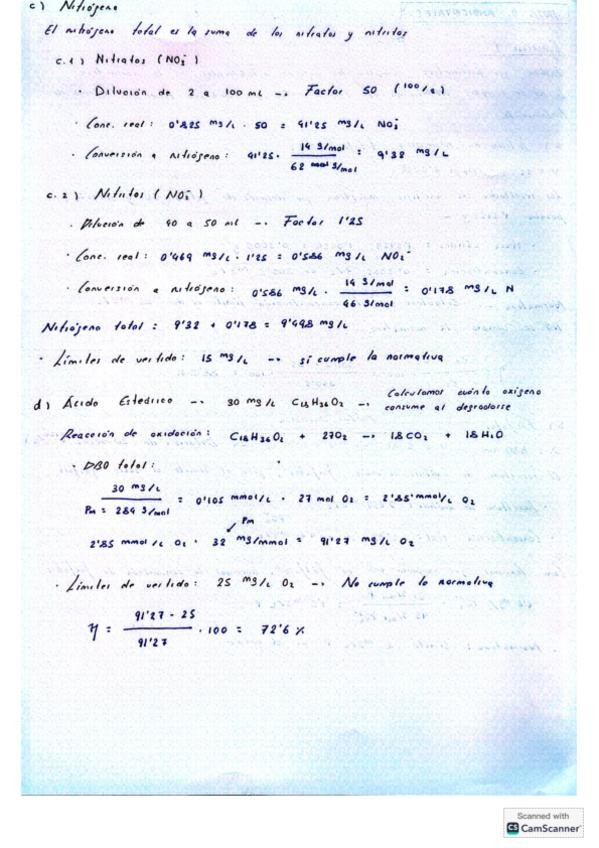 c) Nitrógeno
El nitrógeno total es la suma de los nitratos y nitritos
c.1) Nitratos (NO3-)
· Dilución de 2 a 100 mL --> Factor 50 (100/2)
· Conc. real: 0'825 mg/L · 50 = 41'25 mg/L NO3-
· Conversión a nitrógeno: 41'25 · 14 g/mol / 62 g/mol = 9'32 mg/L
c.2) Nitritos (NO2-)
· Dilución de 40 a 50 ml --> Factor 1'25
· Conc. real: 0'469 mg/L · 1'25 = 0'586 mg/L NO2-
· Conversión a nitrógeno: 0'586 mg/L · 14 g/mol / 46 g/mol = 0'178 mg/L N
Nitrógeno total: 9'32 + 0'178 = 9'498 mg/L
· Límites de vertido: 15 mg/L --> sí cumple la normativa
d) Ácido Esteárico --> 30 mg/L C18H36O2 --> Calculamos cuánto oxígeno
consume al degradarse
Reacción de oxidación: C18H36O2 + 27O2 --> 18CO2 + 18H2O
· DBO total:
30 mg/L / Pm = 284 g/mol = 0'105 mmol/L · 27 mol O2 = 2'85 mmol/L O2
Pm
2'85 mmol/L O2 · 32 mg/mmol = 91'27 mg/L O2
· Límites de vertido: 25 mg/L O2 --> No cumple la normativa
η = 91'27 - 25 / 91'27 · 100 = 72'6 %
Scanned with
CS CamScanner